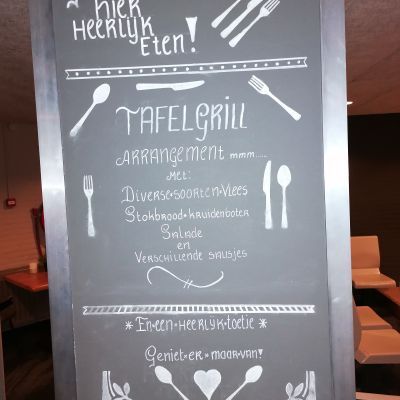 Hier
Heerlijk
Eten!
Tafelgrill
Arrangement mmm.....
Met:
Diverse•soorten•Vlees
Stokbrood•kruidenboter
Salade
en
Verschillende sausjes
* En•een•heerlijk•toetje *
Geniet•er•maar•van!